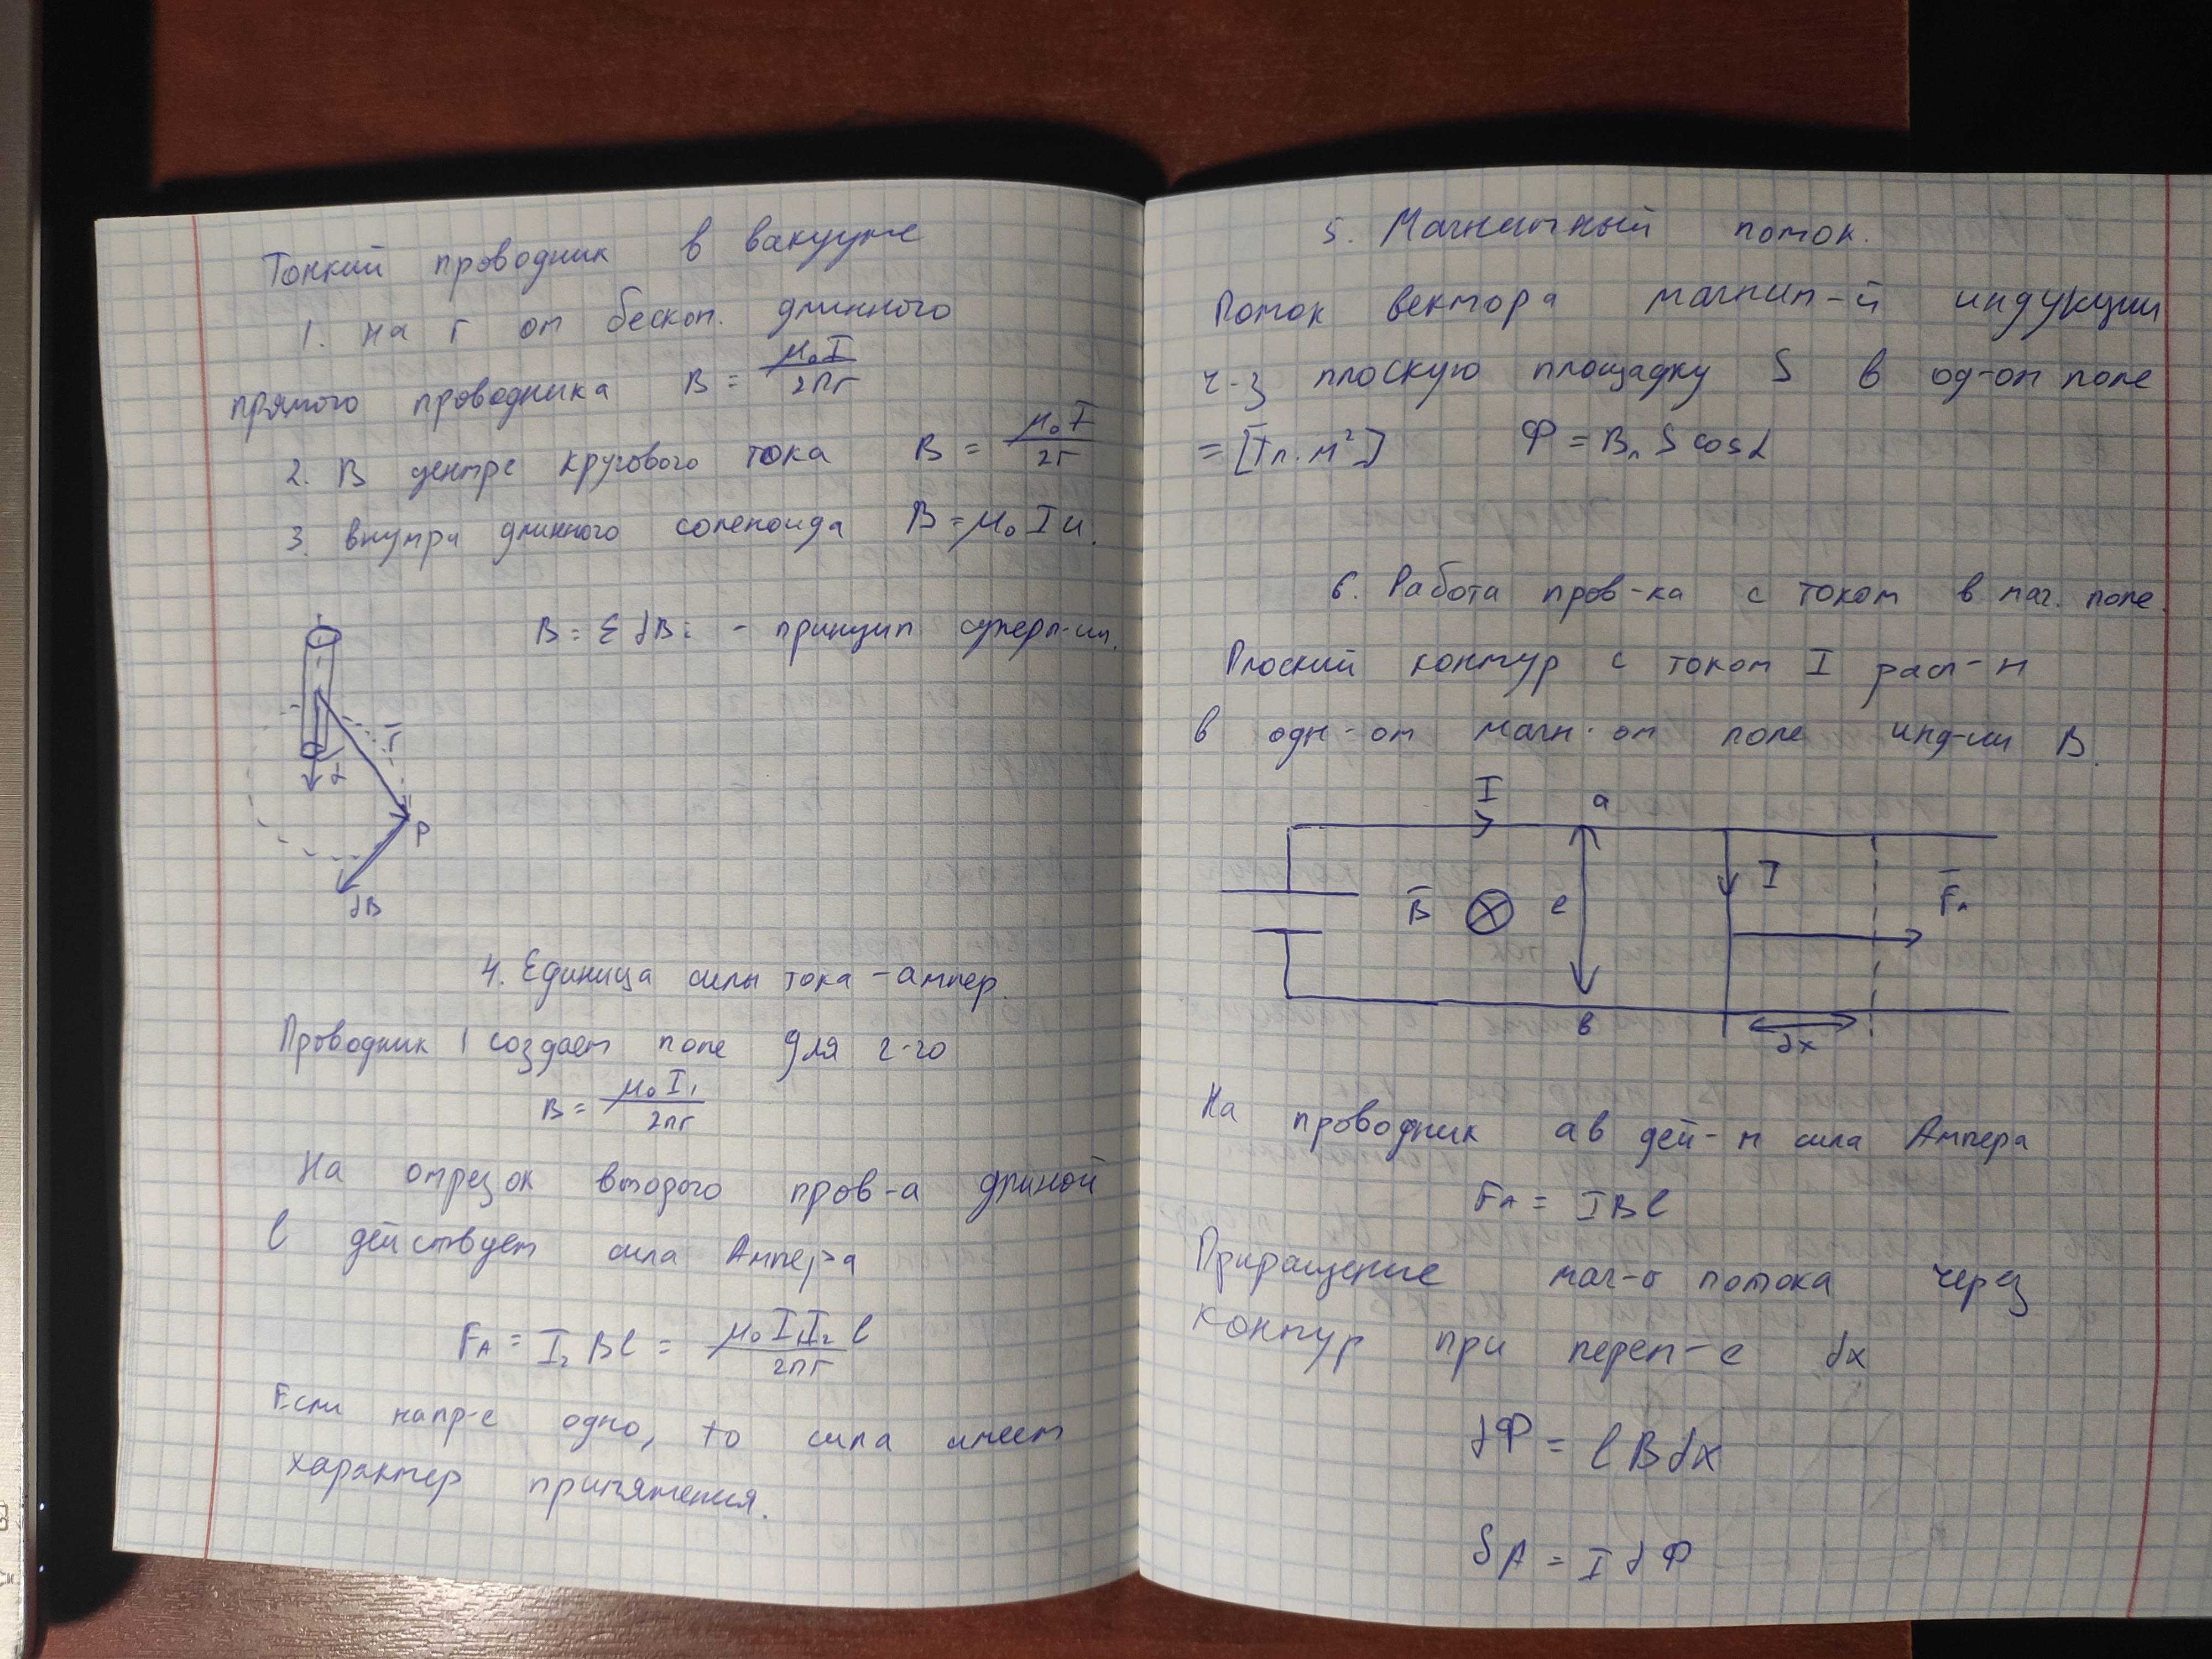 Тонкий проводник в вакууме
1. на r от бескон. длинного
прямого проводника B = μ₀I/2πr
2. В центре кругового тока B = μ₀I/2r
3. внутри длинного соленоида B = μ₀ I n.
B = Σ dBi - принцип суперп-ии.
α
r̄
P
dB
4. Единица силы тока - ампер.
Проводник 1 создает поле для 2-го
B = μ₀ I₁/2πr
На отрезок второго пров-а длиной
l действует сила Ампера
Fₐ = I₂ Bl = μ₀ I₁I₂ l/2πr
Если напр-е одно, то сила имеет
характер притяжения.
5. Магнитный поток.
Поток вектора магнит-й индукции
ч-з плоскую площадку S в од-ом поле
= [Тл·м²] Ф = Bₙ S cosα
6. Работа пров-ка с током в маг. поле.
Плоский контур с током I расп-н
в одн-ом магн-ом поле инд-ии B.
I a
B̄ l I F̄ₐ
в dx
На проводник ав дей-т сила Ампера
Fₐ = IBl
Приращение маг-о потока через
контур при перем-е dx
dФ = l B dx
δA = I dФ